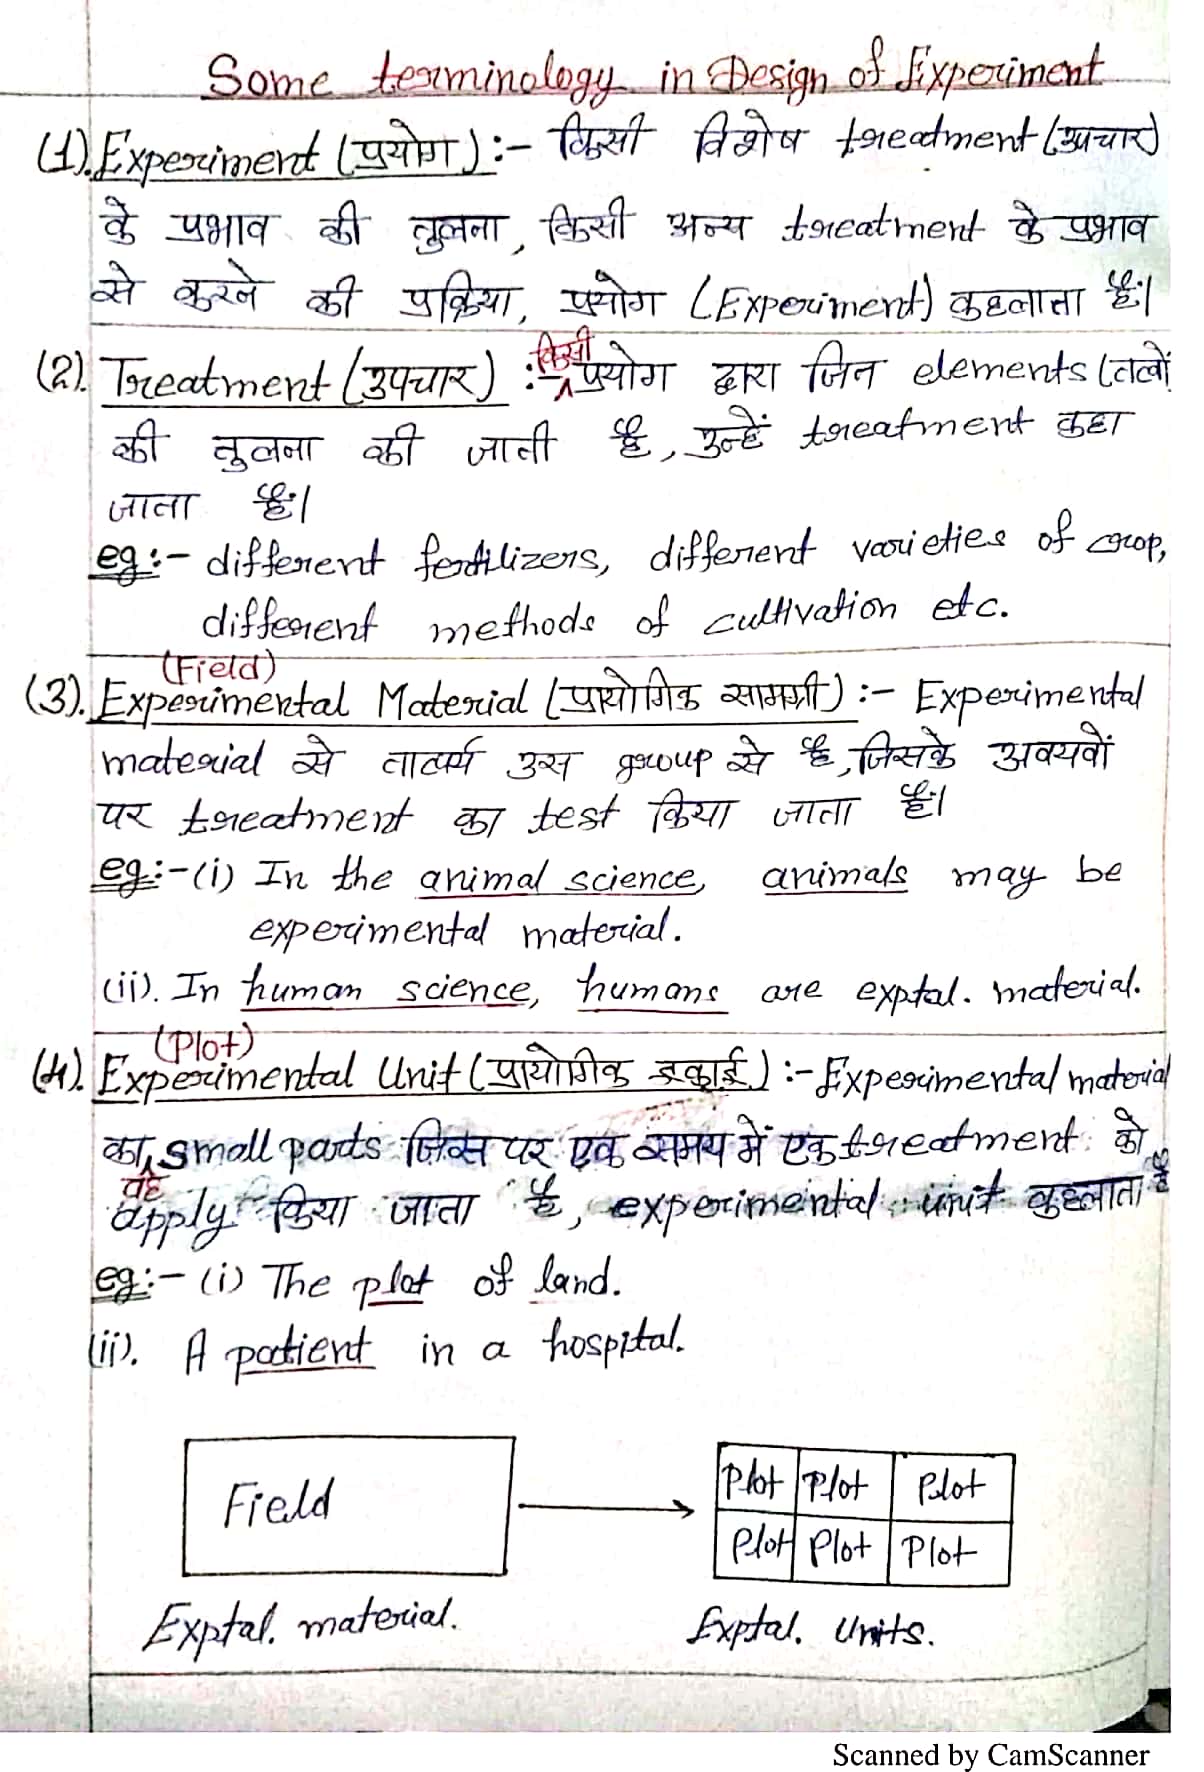 Some terminology in Design of Experiment
(1). Experiment (प्रयोग) :- किसी विशेष treatment (उपचार)
के प्रभाव की तुलना, किसी अन्य treatment के प्रभाव
से करने की प्रक्रिया, प्रयोग (Experiment) कहलाता है।
(2). Treatment (उपचार) :- किसी प्रयोग द्वारा जिन elements (तत्वों
की तुलना की जाती है, उन्हें treatment कहा
जाता है।
eg:- different fertilizers, different varieties of crop,
different methods of cultivation etc.
(Field)
(3). Experimental Material (प्रायोगिक सामग्री) :- Experimental
material से तात्पर्य उस group से है, जिसके अवयवों
पर treatment का test किया जाता है।
eg:- (i) In the animal science, animals may be
experimental material.
(ii). In human science, humans are exptal. material.
(Plot)
(4). Experimental Unit (प्रायोगिक इकाई) :- Experimental material
का वह small parts जिस पर एक समय में एक treatment को
apply किया जाता है, experimental unit कहलाता है
eg:- (i) The plot of land.
(ii). A patient in a hospital.
Field
Plot Plot Plot
Plot Plot Plot
Exptal. material.
Exptal. Units.
Scanned by CamScanner